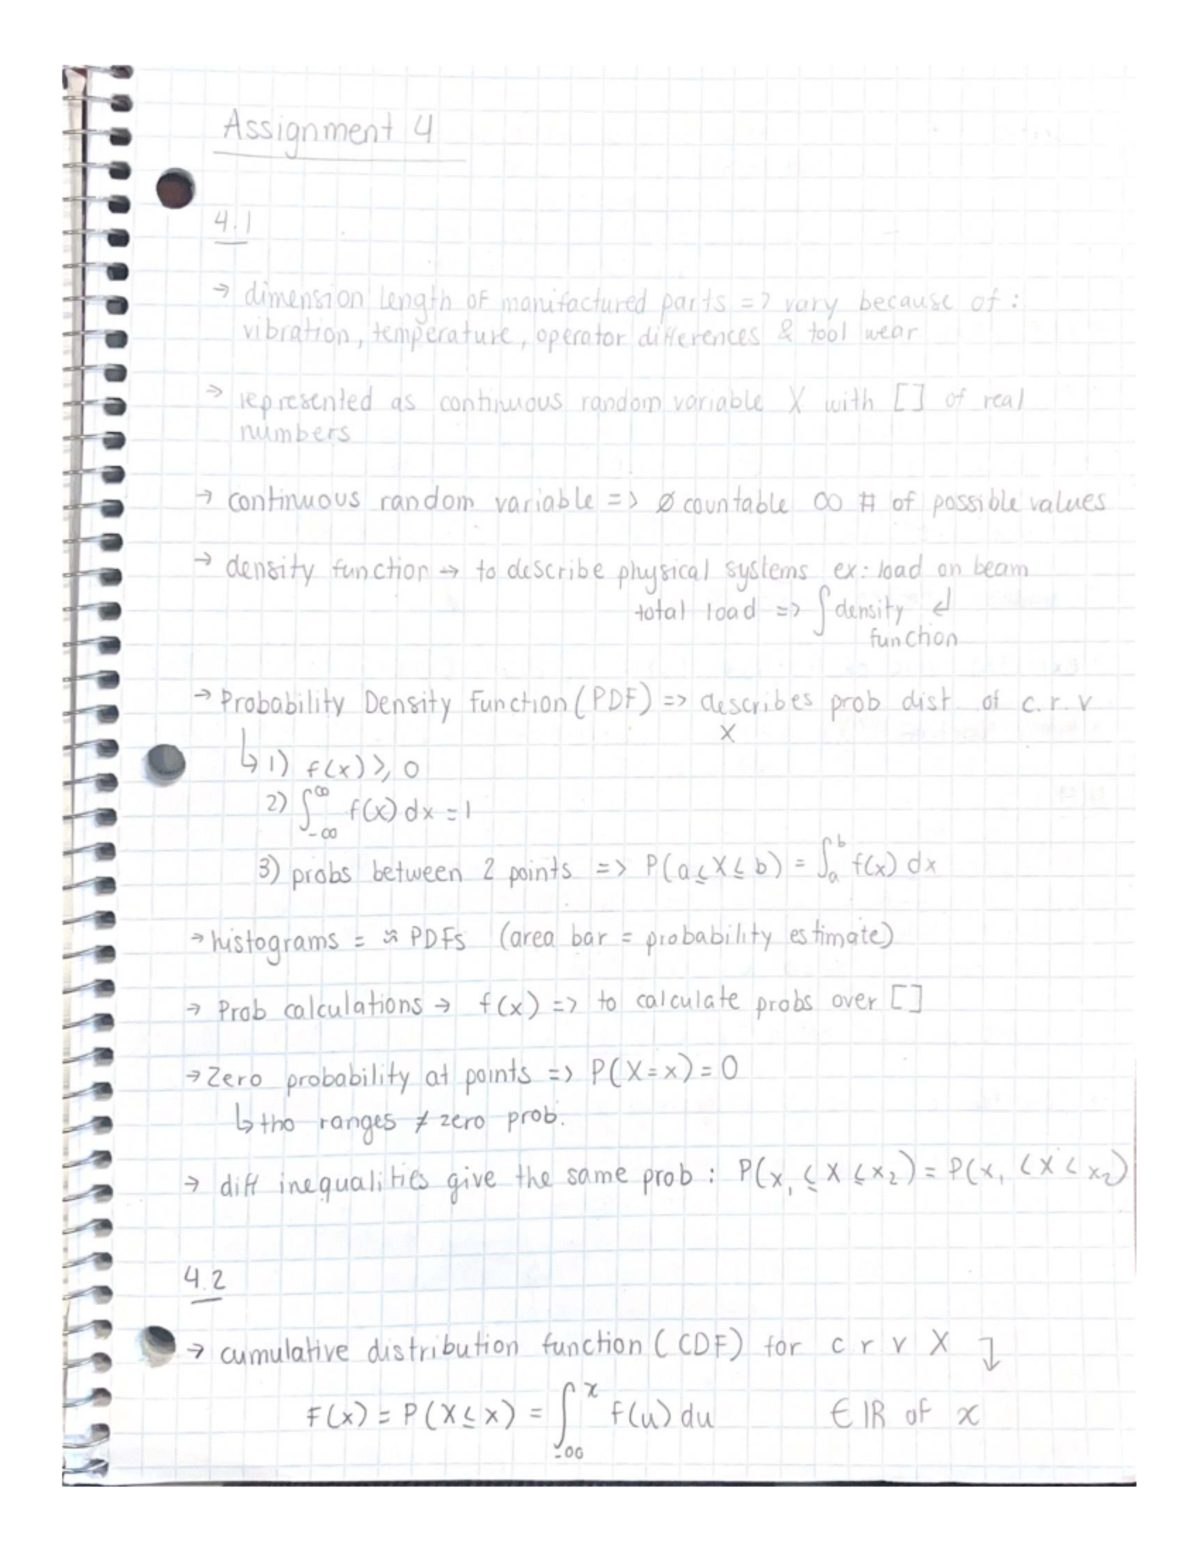 Assignment 4
4.1
→ dimension length of manifactured parts => vary because of :
vibration, temperature, operator differences & tool wear
→ represented as continuous random variable X with [] of real
numbers
→ continuous random variable => Ø countable ∞ # of possible values
→ density function → to describe physical systems ex: load on beam
total load => ∫ density ↲
function
→ Probability Density Function (PDF) => describes prob dist. of c.r.v
X
↳ 1) f(x) ≥ 0
2) ∫_{-∞}^{∞} f(x) dx = 1
3) probs between 2 points => P(a ≤ X ≤ b) = ∫_a^b f(x) dx
→ histograms = ≈ PDFs (area bar = probability estimate)
→ Prob calculations → f(x) => to calculate probs over []
→ Zero probability at points => P(X=x) = 0
↳ tho ranges ≠ zero prob.
→ diff inequalities give the same prob : P(x₁ ≤ X ≤ x₂) = P(x₁ < X < x₂)
4.2
→ cumulative distribution function (CDF) for c r v X ↴
F(x) = P(X ≤ x) = ∫_{-∞}^x f(u) du ∈ ℝ of x